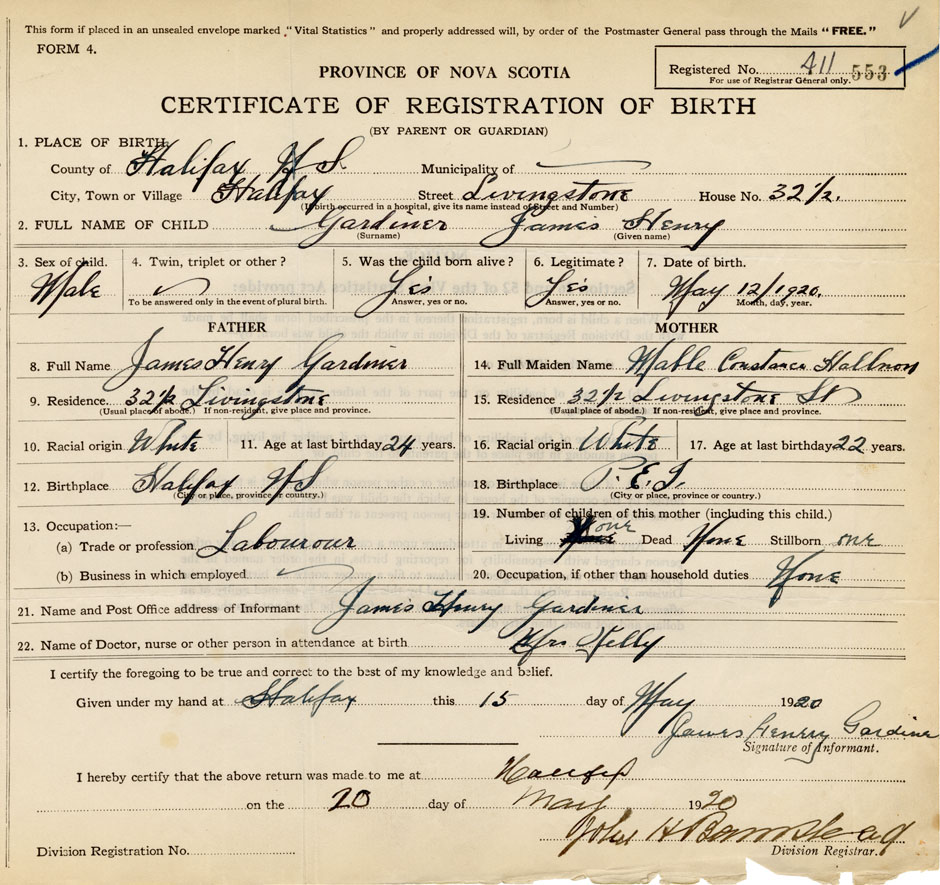 This form if placed in an unsealed envelope marked "Vital Statistics" and properly addressed will, by order of the Postmaster General pass through the Mails "FREE."
FORM 4.
PROVINCE OF NOVA SCOTIA
Registered No. 411 553
For use of Registrar General only.
CERTIFICATE OF REGISTRATION OF BIRTH
(BY PARENT OR GUARDIAN)
1. PLACE OF BIRTH,
County of Halifax N S. Municipality of
City, Town or Village Halifax Street Livingstone House No. 32 1/2.
(If birth occurred in a hospital, give its name instead of Street and Number)
2. FULL NAME OF CHILD Gardiner James Henry
(Surname) (Given name)
3. Sex of child. 4. Twin, triplet or other? 5. Was the child born alive? 6. Legitimate? 7. Date of birth.
Male Yes Yes May 12/1920.
To be answered only in the event of plural birth. Answer, yes or no. Answer, yes or no. Month, day, year.
FATHER MOTHER
8. Full Name James Henry Gardiner 14. Full Maiden Name Mable Constance
9. Residence. 32 1/2 Livingstone 15. Residence 32 1/2 Livingstone St
(Usual place of abode.) If non-resident, give place and province. (Usual place of abode.) If non-resident, give place and province.
10. Racial origin White 11. Age at last birthday 24 years. 16. Racial origin White 17. Age at last birthday 22 years.
12. Birthplace Halifax N S 18. Birthplace P. E. I.
(City or place, province or country.) (City or place, province or country.)
19. Number of children of this mother (including this child.)
13. Occupation:—
(a) Trade or profession Labourour Living Dead None Stillborn one
(b) Business in which employed 20. Occupation, if other than household duties None
21. Name and Post Office address of Informant James Henry Gardiner
22. Name of Doctor, nurse or other person in attendance at birth Mrs Kelly
I certify the foregoing to be true and correct to the best of my knowledge and belief.
Given under my hand at Halifax this 15 day of May 1920
James Henry Gardiner
Signature of Informant.
I hereby certify that the above return was made to me at Halifax
on the 20 day of May 1920
John H Barnstead
Division Registration No. Division Registrar.